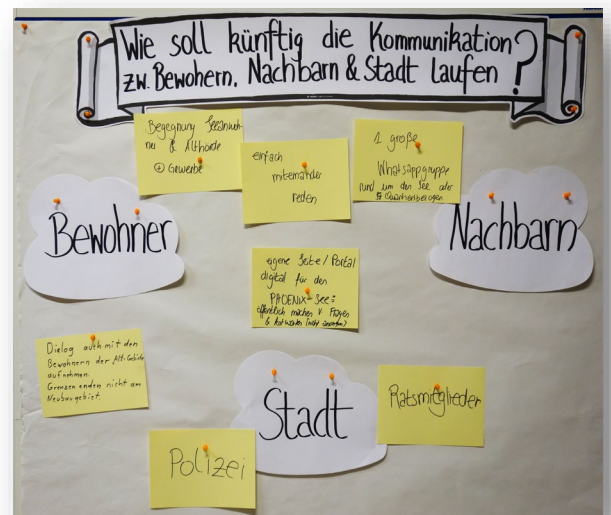 Wie soll künftig die Kommunikation
zw. Bewohern, Nachbarn & Stadt laufen?
Begegnung Seeanwoh-
ner & Althörde
+ Gewerbe
einfach
miteinander
reden
1 große
Whatsappgruppe
rund um den See oder
Quartierbezogen
Bewohner
Nachbarn
eigene Seite / Portal
digital für den
PHOENIX-See:
öffentlich machen v. Fragen
& Antworten
Dialog auch mit den
Bewohnern der Alt-Gebiete
aufnehmen.
Grenzen enden nicht am
Neubaugebiet.
Stadt
Ratsmitglieder
Polizei